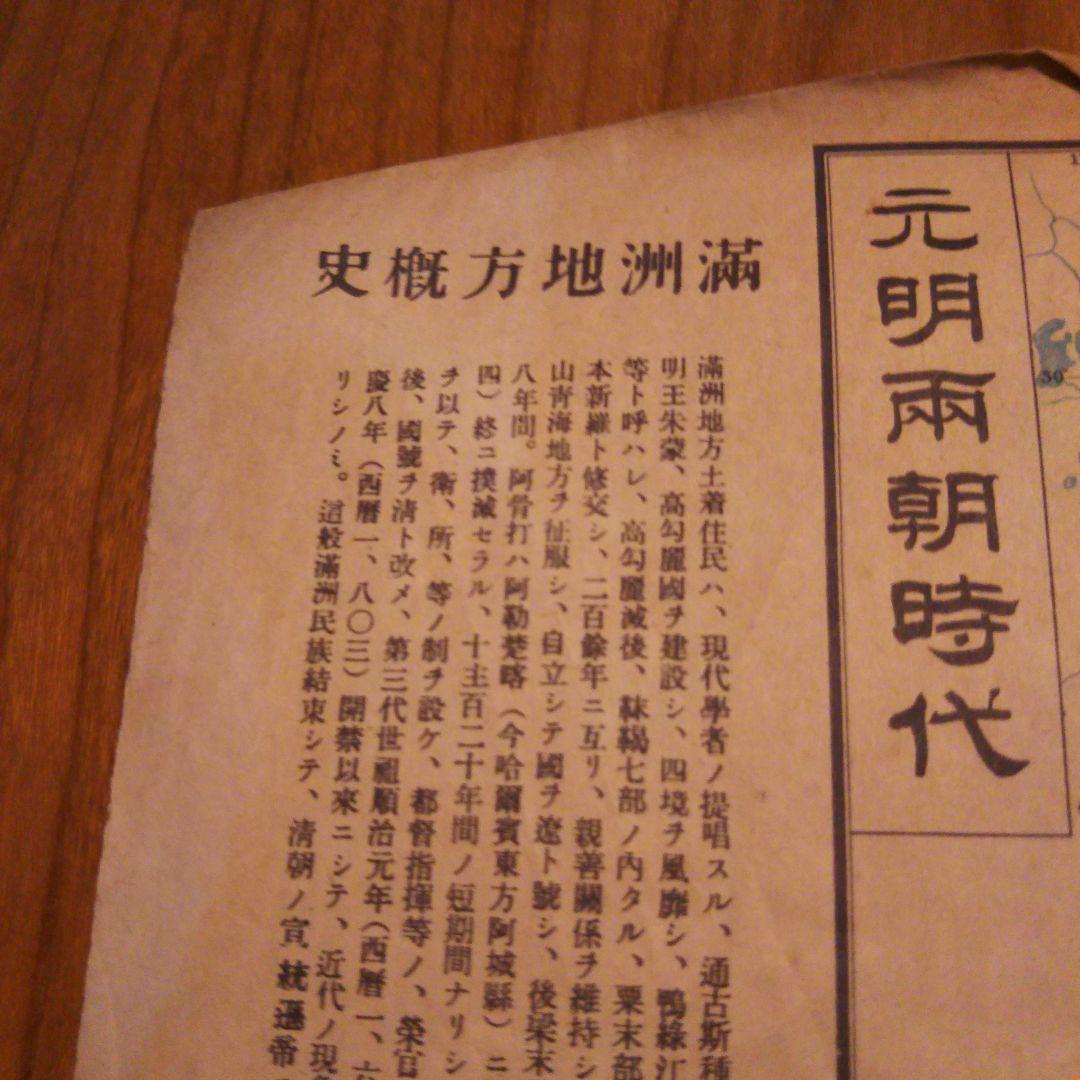 元明兩朝時代
滿洲地方概史
滿洲地方土着住民ハ、現代學者ノ提唱スル、通古斯種
明王朱蒙、高勾麗國ヲ建設シ、四境ヲ風靡シ、鴨綠江
等ト呼ハレ、高勾麗滅後、靺鞨七部ノ內タル、粟末部
本新羅ト修交シ、二百餘年ニ互リ、親善關係ヲ維持シ
山靑海地方ヲ征服シ、自立シテ國ヲ遼ト號シ、後梁末
八年間。阿骨打ハ阿勒楚喀（今哈爾賓東方阿城縣）ニ
四）終ニ撲滅セラル、十主百二十年間ノ短期間ナリシ
ヲ以テ、衛、所、等ノ制ヲ設ケ、都督指揮等ノ、榮官
後、國號ヲ淸ト改メ、第三代世祖順治元年（西曆一、六
慶八年（西曆一、八〇三）開禁以來ニシテ、近代ノ現
リシノミ。這般滿洲民族結束シテ、淸朝ノ宣統遜帝
30